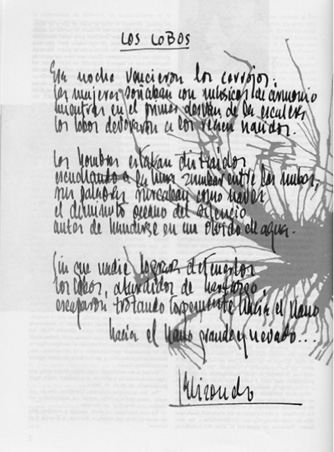 LOS LOBOS
Esa noche vencieron los cerrojos.
Las mujeres soñaban con músicos de armonio
mientras en el primer desván de la escalera
los lobos devoraron a los recién nacidos.
Los hombres estaban distraídos,
escuchando a la luna zumbar entre las nubes,
sus palabras surcaban como naves
el diminuto océano del silencio
antes de hundirse en un olvido de agua.
Sin que nadie lograra detenerlos
los lobos, aturdidos de hartazgo
escaparon trotando torpemente hacia el llano
hacia el llano grande y nevado...